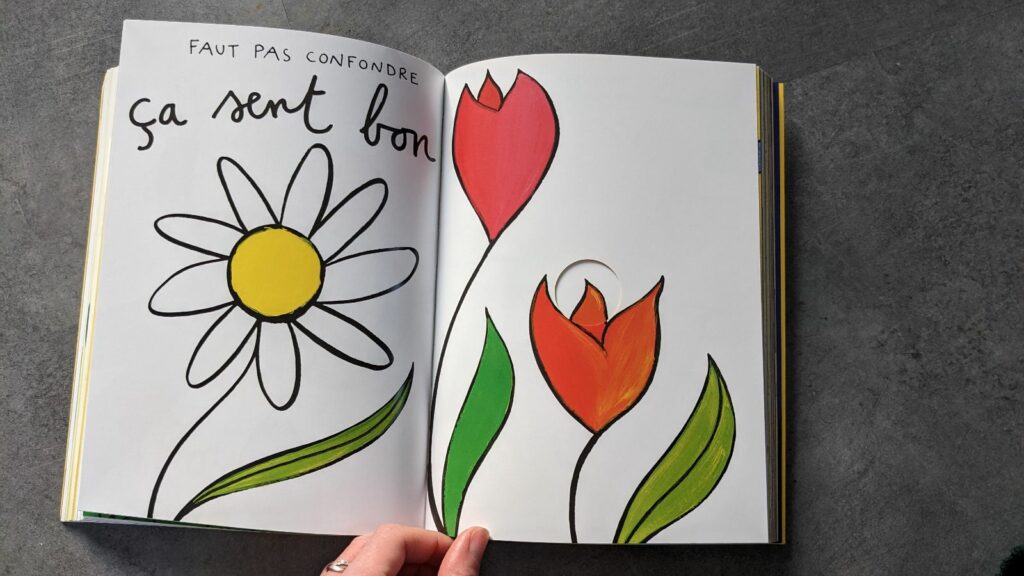 FAUT PAS CONFONDRE
ça sent bon